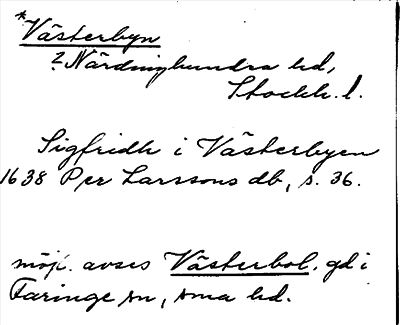 *Västerbyn
? Närdinghundra hd,
Stockh. l.
Sigfridh i Västerbyen
1638 Per Larssons db, s. 36.
möjl. avses Västerbol, gd i
Faringe sn, sma hd.